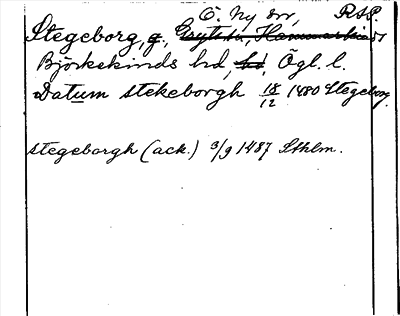 Ö. Ny sn, RSP.
Stegeborg, g.,
Björkekinds hd, Ögl. l.
Datum stekeborgh 18/12 1480 Stegeborg.
stegeborgh (ack.) 3/9 1487 Sthlm.